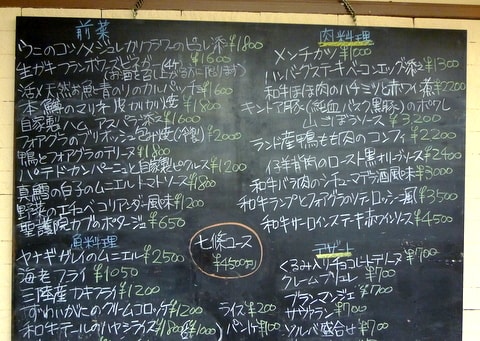 前菜
ウニのコンソメジュレカリフラワーのピュレ添え ¥1800
生ガキフランボワーズビネガー(4ケ) ¥1600
(お酒を召し上がる方に限ります)
活〆天然お魚と青のりのカルパッチョ ¥1600
本鮪のマリネ ¥1800
自家製ハム アスパラ添え ¥1600
フォアグラのブリオッシュ包み焼 ¥2000
鴨とフォアグラのテリーヌ ¥1800
パテドカンパーニュと自家製ピクルス ¥1200
真鱈の白子のムニエルトマトソース ¥1800
野菜のエチュベコリアンダー風味 ¥1200
聖護院カブのポタージュ ¥650
魚料理
ヤナギガレイのムニエル ¥2500
海老フライ ¥1050
三陸産カキフライ ¥1200
ずわいがにのクリームコロッケ ¥1200
和牛テールのハヤシライス ¥1800
七條コース
¥4500
ライス ¥200
パン ¥100
肉料理
メンチカツ ¥1000
ハンバーグステーキベーコンエッグ添え ¥1300
和牛ほほ肉のハチミツと赤ワイン煮 ¥2200
キントア豚(純血バスク黒豚)のポワレ
山ごぼうソース ¥3200
ランド産鴨もも肉のコンフィ ¥2200
仔羊背肉のロースト黒オリーブソース ¥2400
和牛バラ肉のシチューマデラ酒風味 ¥3000
和牛ランプとフォアグラのソテーロッシーニ風 ¥3500
和牛サーロインステーキ赤ワインソース ¥4500
デザート
くるみ入りチョコレートテリーヌ ¥700
クレームブリュレ ¥700
ブランマンジェ ¥700
サヴァラン ¥700
ソルベ盛合せ ¥700